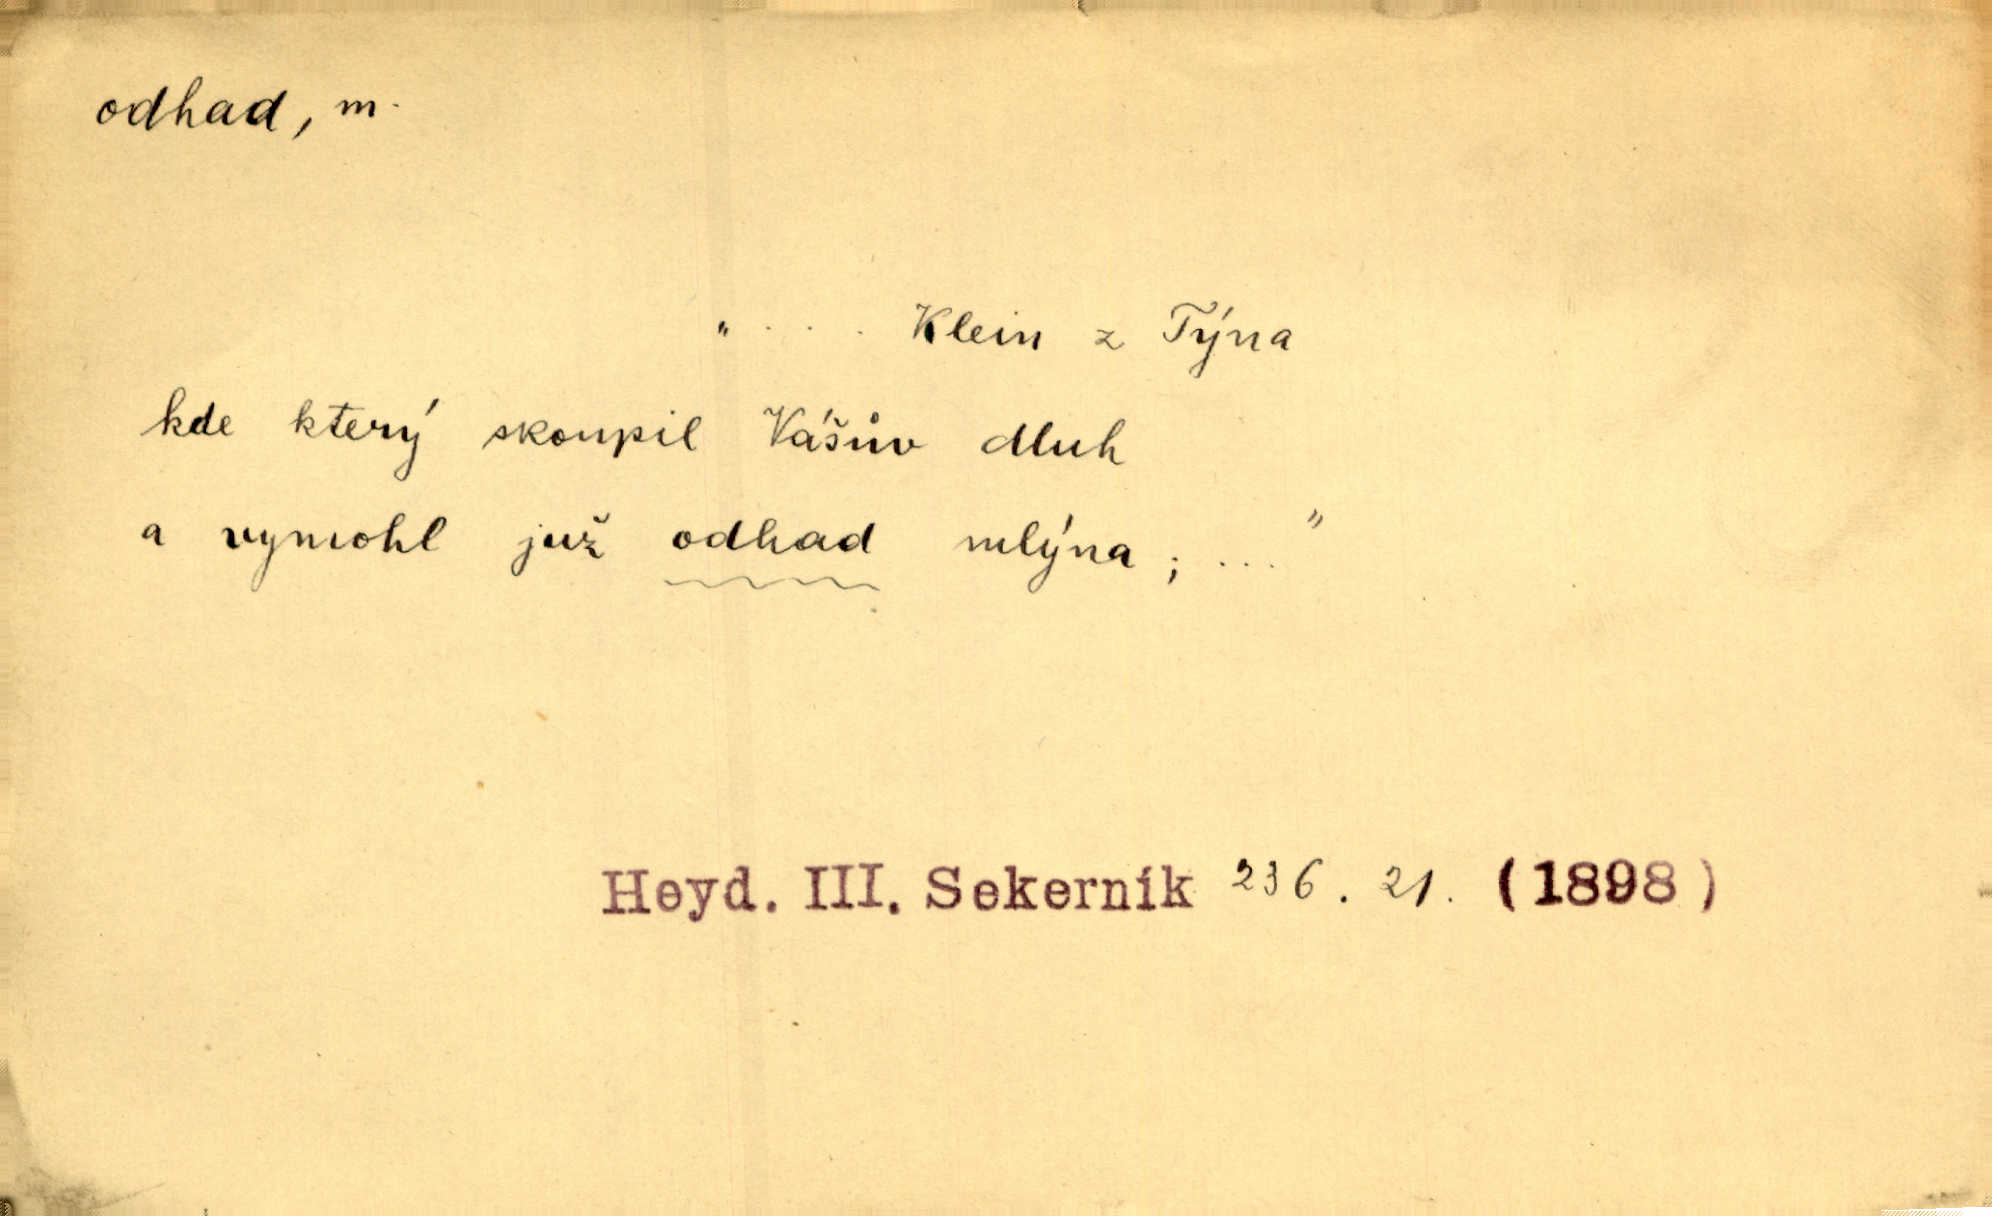 odhad, m.
" . . . Klein z Týna
kde který skoupil Vášův dluh
a vymohl již odhad mlýna ; ... "
Heyd. III. Sekerník 236. 21. (1898)